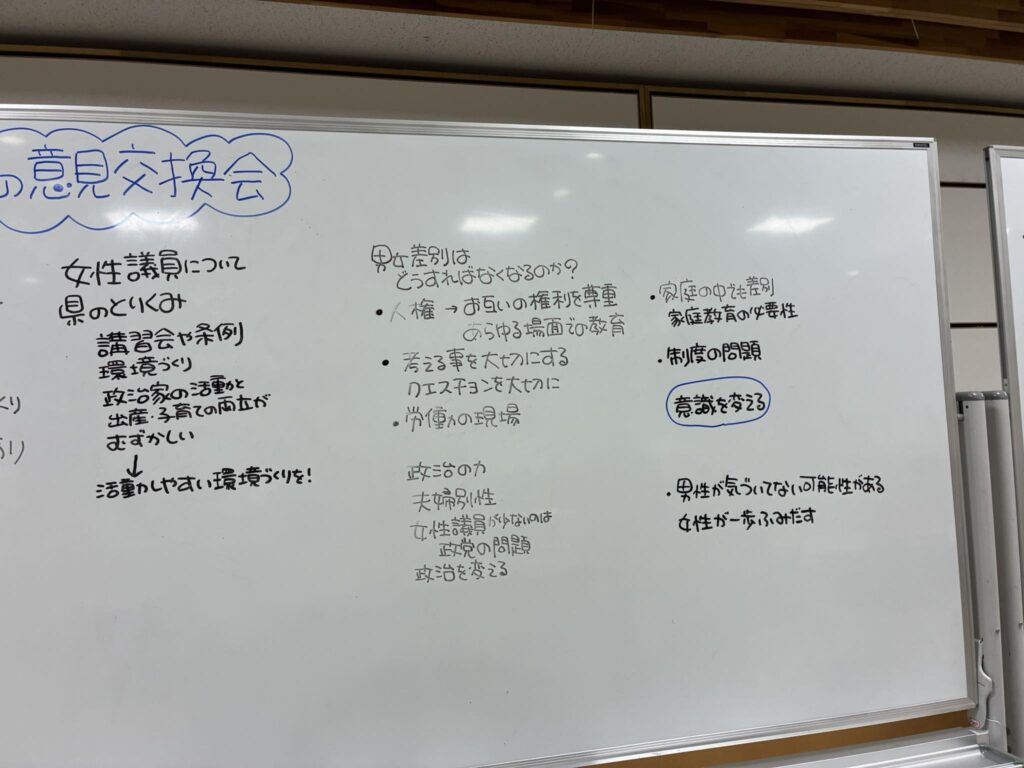 の意見交換会
女性議員について
県のとりくみ
講習会や条例
環境づくり
政治家の活動と
出産・子育ての両立が
むずかしい
↓
活動しやすい環境づくりを!
男女差別は
どうすればなくなるのか?
・人権 → お互いの権利を尊重
あらゆる場面での教育
・考える事を大切にする
クエスチョンを大切に
・労働力の現場
政治の力
夫婦別性
女性議員が少ないのは
政党の問題
政治を変える
・家庭の中でも差別
家庭教育の必要性
・制度の問題
意識を変える
・男性が気づいてない可能性がある
女性が一歩ふみだす